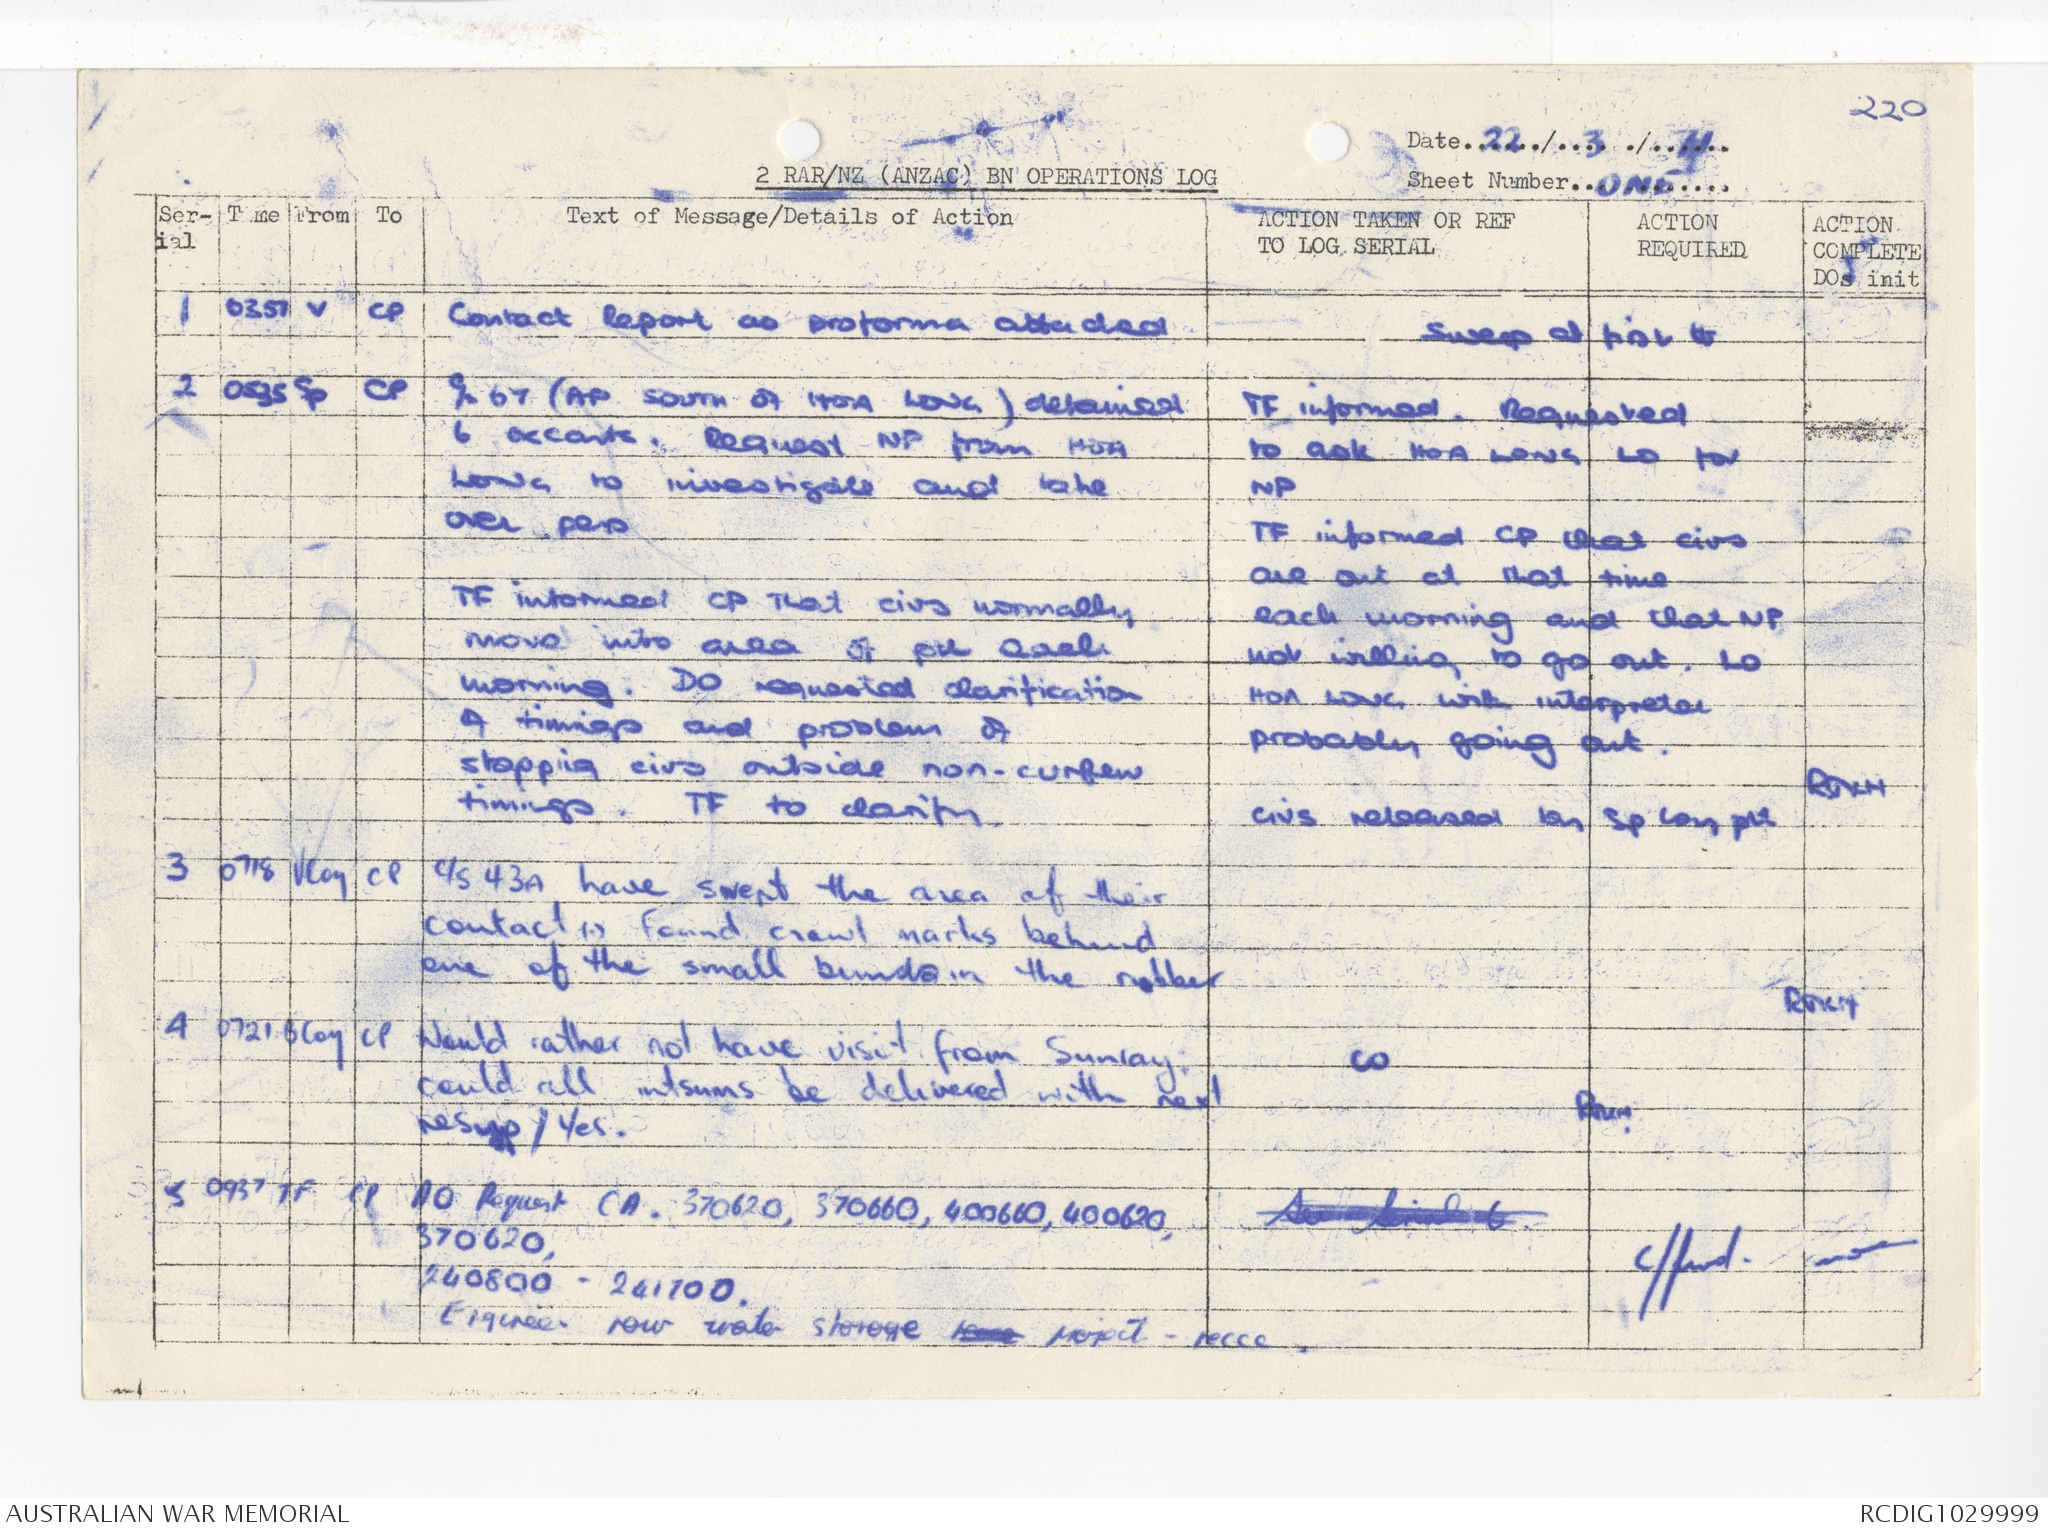 220
Date 22/3/71
2 RAR/NZ (ANZAC) BN OPERATIONS LOG
Sheet Number ONE
Ser-ial Time From To Text of Message/Details of Action ACTION TAKEN OR REF TO LOG SERIAL ACTION REQUIRED ACTION COMPLETE DOs init
1 0357 V CP Contact Report as proforma attached
Sweep at first lt
2 0535 Sp CP 67 (AP SOUTH OF HOA LONG) detained
6 oxcarts. Request NP from HOA
LONG to investigate and take
over pers
TF informed. Requested
to ask HOA LONG LO for
NP
TF informed CP that civs normally
move into area of ptl each
morning. DO requested clarification
of timings and problem of
stopping civs outside non-curfew
timings. TF to clarify.
TF informed CP that civs
are out at that time
each morning and that NP
not willing to go out. LO
HOA LONG with interpreter
probably going out.
civs released by Sp Coy ptl
3 0718 VCoy CP C/S 43A have swept the area of their
contact (.) Found crawl marks behind
one of the small bunds in the rubber
4 0721 Coy CP Would rather not have visit from Sunray.
could all intsums be delivered with next
resup / Yes.
CO
5 0937 TF CP AO Request CA. 370620, 370660, 400660, 400620,
370620,
240800 - 241700.
Engineer raw water storage project - recce.
See Serial 6.
AUSTRALIAN WAR MEMORIAL
RCDIG1029999